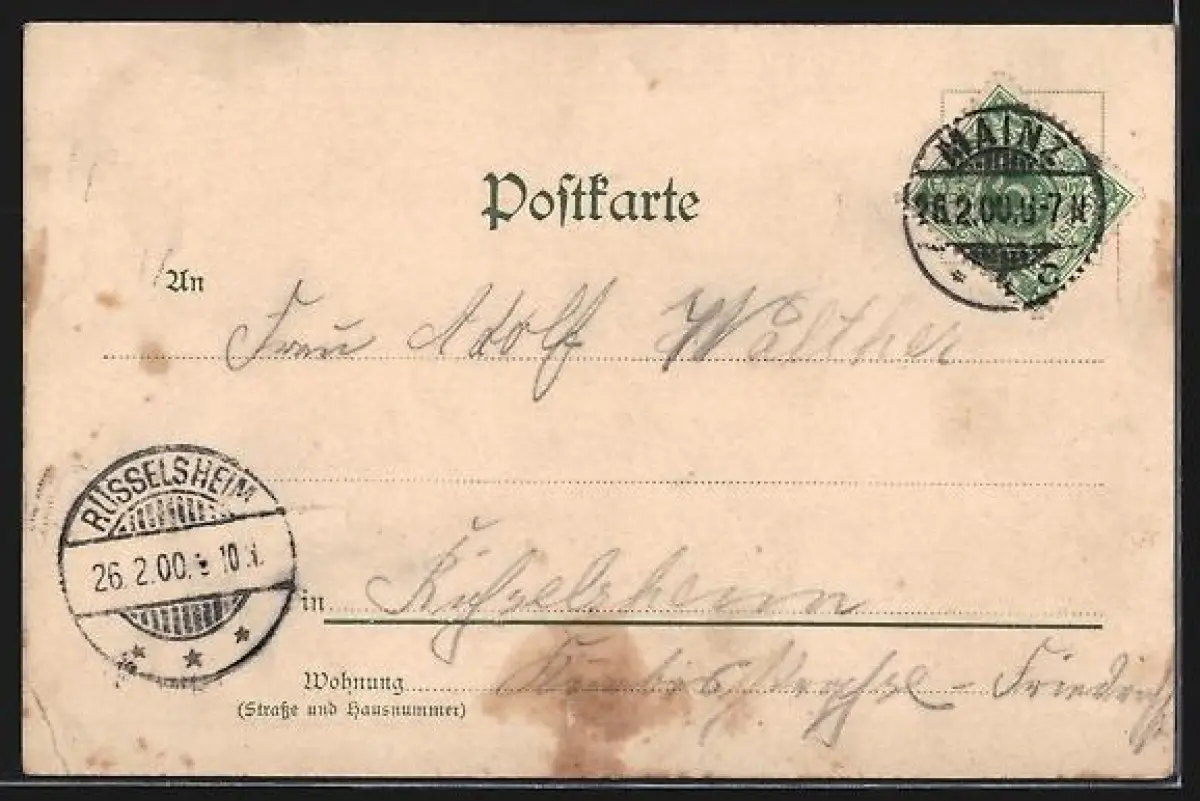 Postkarte
MAINZ
26.2.00.6-7N
* 1 C
An
Frau Adolf Walther
RÜSSELSHEIM
26.2.00. 10 N.
* * *
in Rüsselsheim
Wohnung
(Straße und Hausnummer)
- Friedrich